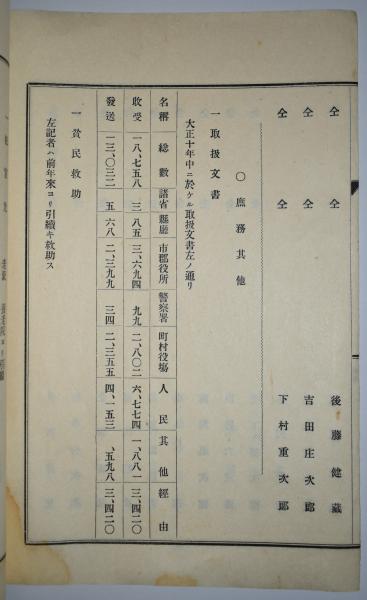 仝　仝　後藤健藏
仝　仝　吉田庄次郎
仝　仝　下村重次郎
〇庶務其他
一取扱文書
大正十年中ニ於ケル取扱文書左ノ通リ
名稱　總數　諸省縣廳　市郡役所　警察署　町村役塲　人民　其他　經由
收受　一八、七五八　三八五　三、六九四　九九　二、八〇二　六、七七四　一、八八一　三、四二〇
發送　一三、〇三二　五六八　二、三九九　三四　二、三五五　四、一五三　、五九八　三、四二〇
一貧民救助
左記者ハ前年來ヨリ引續キ救助ス